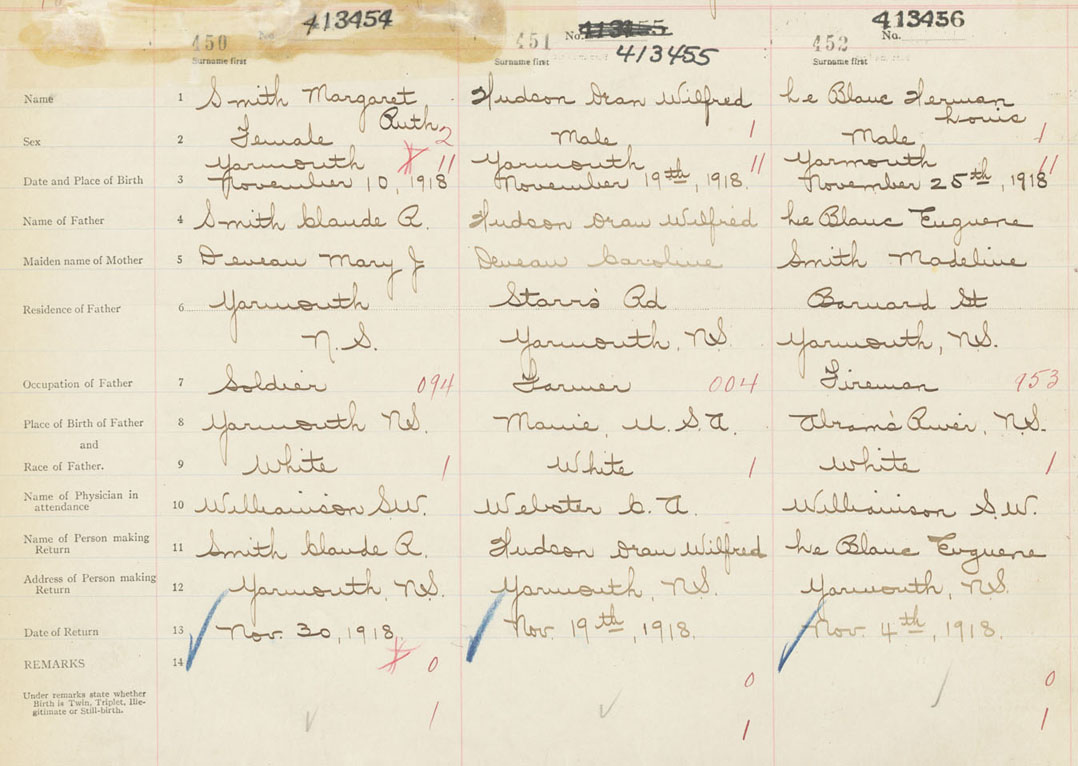 413454 413455 413456
450 No. 451 No. 452 No.
Surname first Surname first Surname first
413455
Name 1 Smith Margaret Hudson Oran Wilfred Le Blanc Herman
Ruth 2 1 Louis 1
Sex 2 Female Male Male
Yarmouth 11 Yarmouth 11 Yarmouth 11
Date and Place of Birth 3 November 10, 1918 November 19th, 1918. November 25th, 1918
Name of Father 4 Smith Claude R. Hudson Oran Wilfred Le Blanc Euguene
Maiden name of Mother 5 Deveau Mary J Deveau Caroline Smith Madeline
Residence of Father 6 Yarmouth Starrs' Rd Barnard St
N.S. Yarmouth, N.S. Yarmouth, N.S.
Occupation of Father 7 Soldier 094 Farmer 004 Fireman 953
Place of Birth of Father 8 Yarmouth N.S. Maine, U.S.A. Abram's River, N.S.
and
Race of Father. 9 White 1 White 1 White 1
Name of Physician in
attendance 10 Williamson S.W. Webster C. A. Williamson S.W.
Name of Person making
Return 11 Smith Claude R. Hudson Oran Wilfred Le Blanc Euguene
Address of Person making
Return 12 Yarmouth, N.S. Yarmouth, N.S. Yarmouth, N.S.
Date of Return 13 Nov. 30, 1918 Nov. 19th, 1918. Nov. 4th, 1918.
REMARKS 14 0 0 0
Under remarks state whether
Birth is Twin, Triplet, Ille-
gitimate or Still-birth. 1 1 1